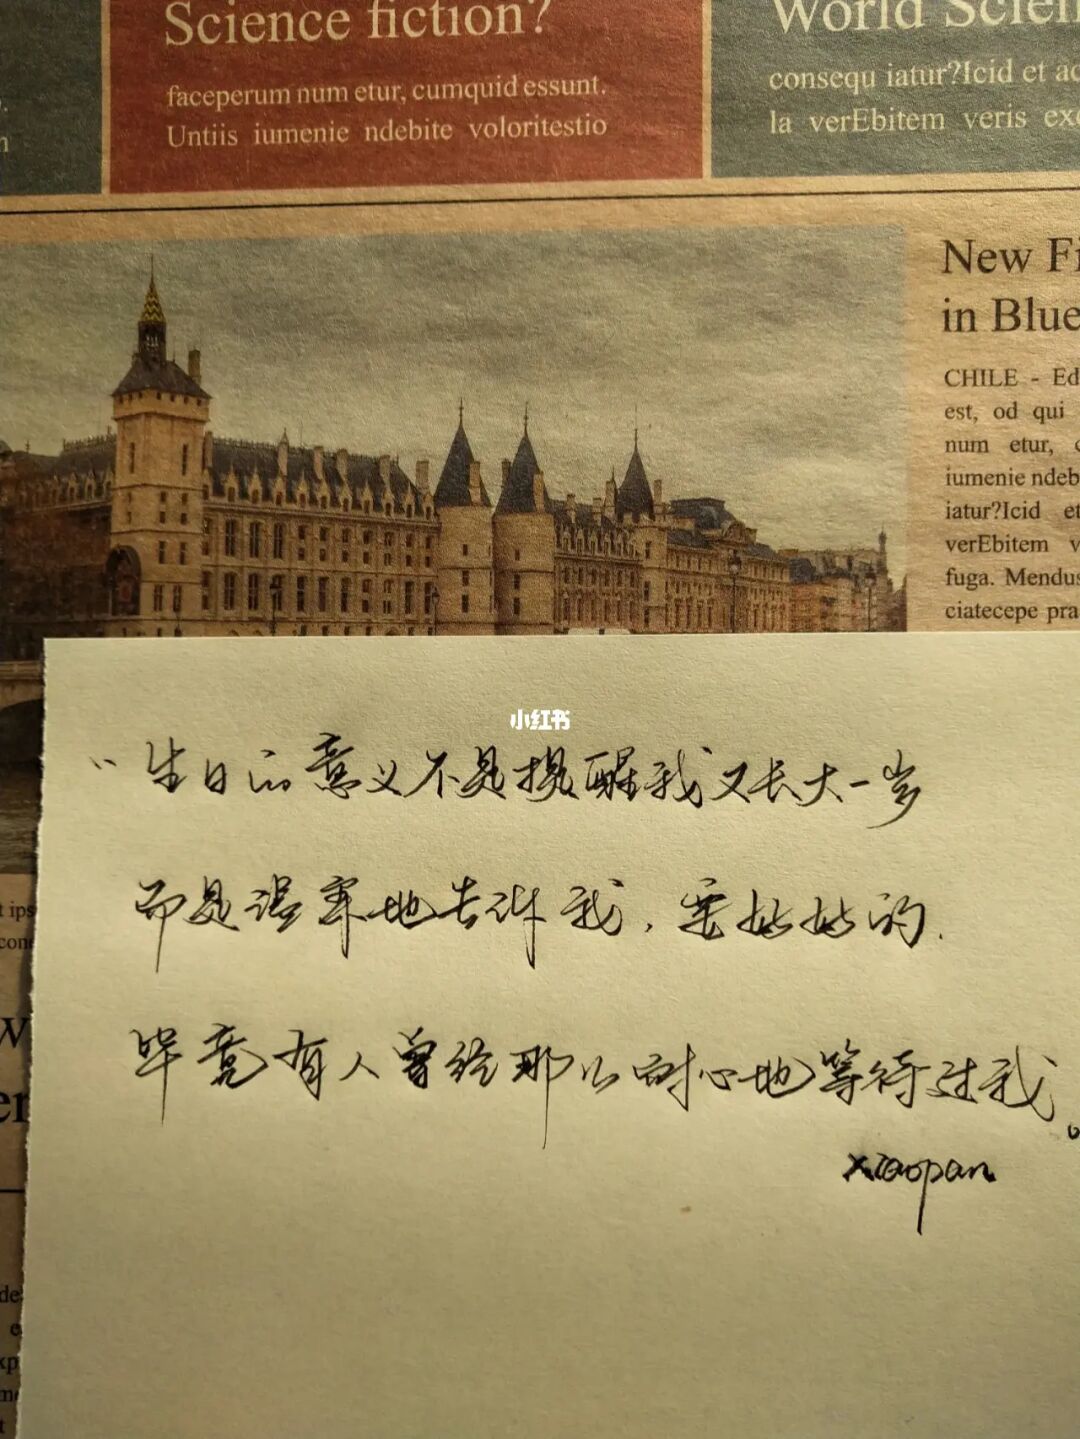 Science fiction?
faceperum num etur, cumquid essunt.
Untiis iumenie ndebite voloritestio
World Scien
consequ iatur?Icid et ac
la verEbitem veris exc
New Fi
in Blue
CHILE - Ed
est, od qui
num etur, c
iumenie ndeb
iatur?Icid et
verEbitem v
fuga. Mendus
ciatecepe pra
小红书
“生日的意义不是提醒我又长大一岁
而是温柔地告诉我，要好好的.
毕竟有人曾经那么耐心地等待过我。
xiaopan